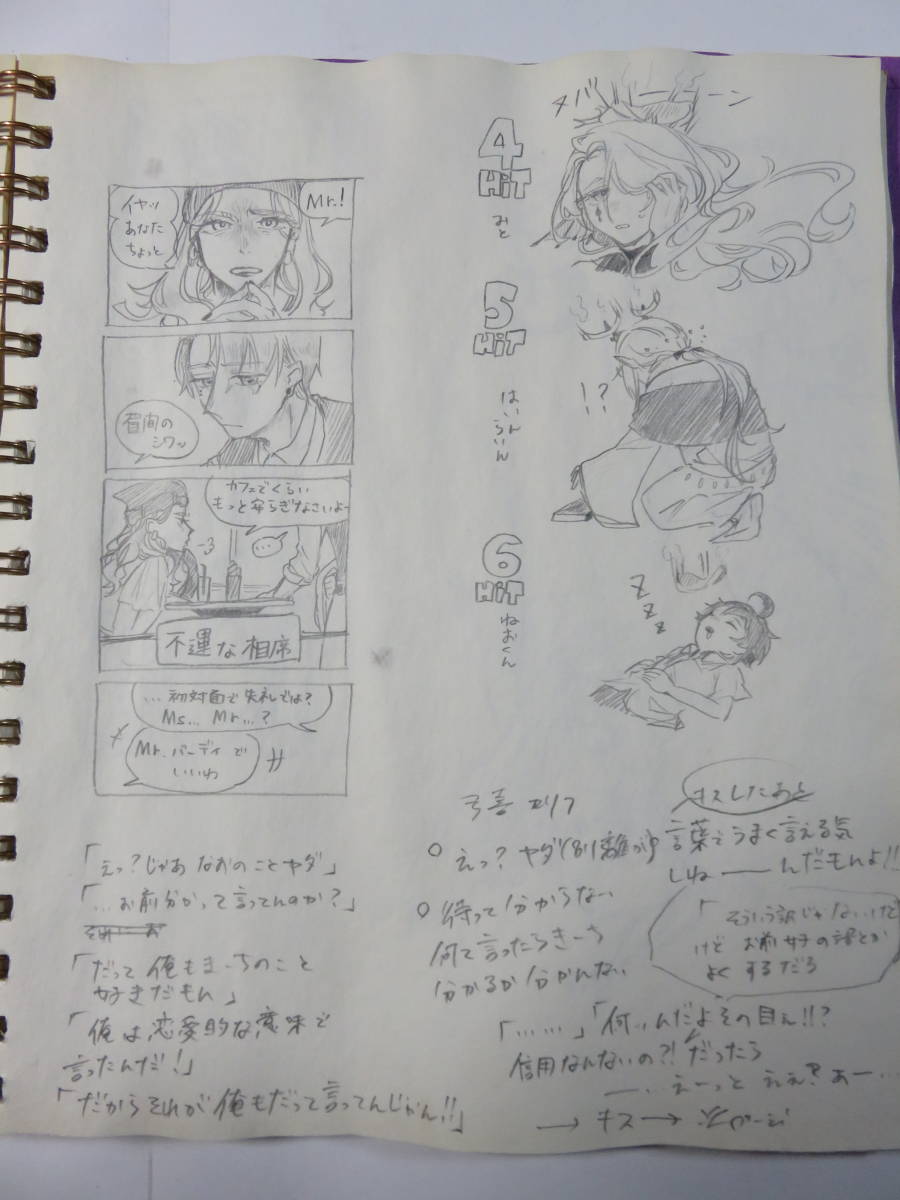 Mr.!
イヤッ
あなた
ちょっと
眉間の
シワッ
カフェでくらい
もっと安らぎなさいよー
…
不運な相席
…初対面で失礼では?
Ms… Mr…?
Mr.バーディで
いいわ
「えっ?じゃあ なおのことヤダ」
「…お前分かって言ってんのか?」
「だって俺もまーちのこと
好きだもん」
「俺は恋愛的な意味で
言ったんだ!」
「だからそれが俺もだって言ってんじゃん!!」
4
HiT
みと
5
HiT
はいんらいん
!?
6
HiT
ねおくん
Z
Z
Z
キスしたあと
えっ?ヤダ
言葉でうまく言える気
しねーんだもんよ!!
待って分からない
何て言ったらまーち
分かるか分かんない
「そういう訳じゃないけど
けど お前女子の話とか
よくするだろ
「……」「何んだよその目ん!!?
信用なんないの?!だったら
…えーっと ええ?あー…
→キス→次ページ